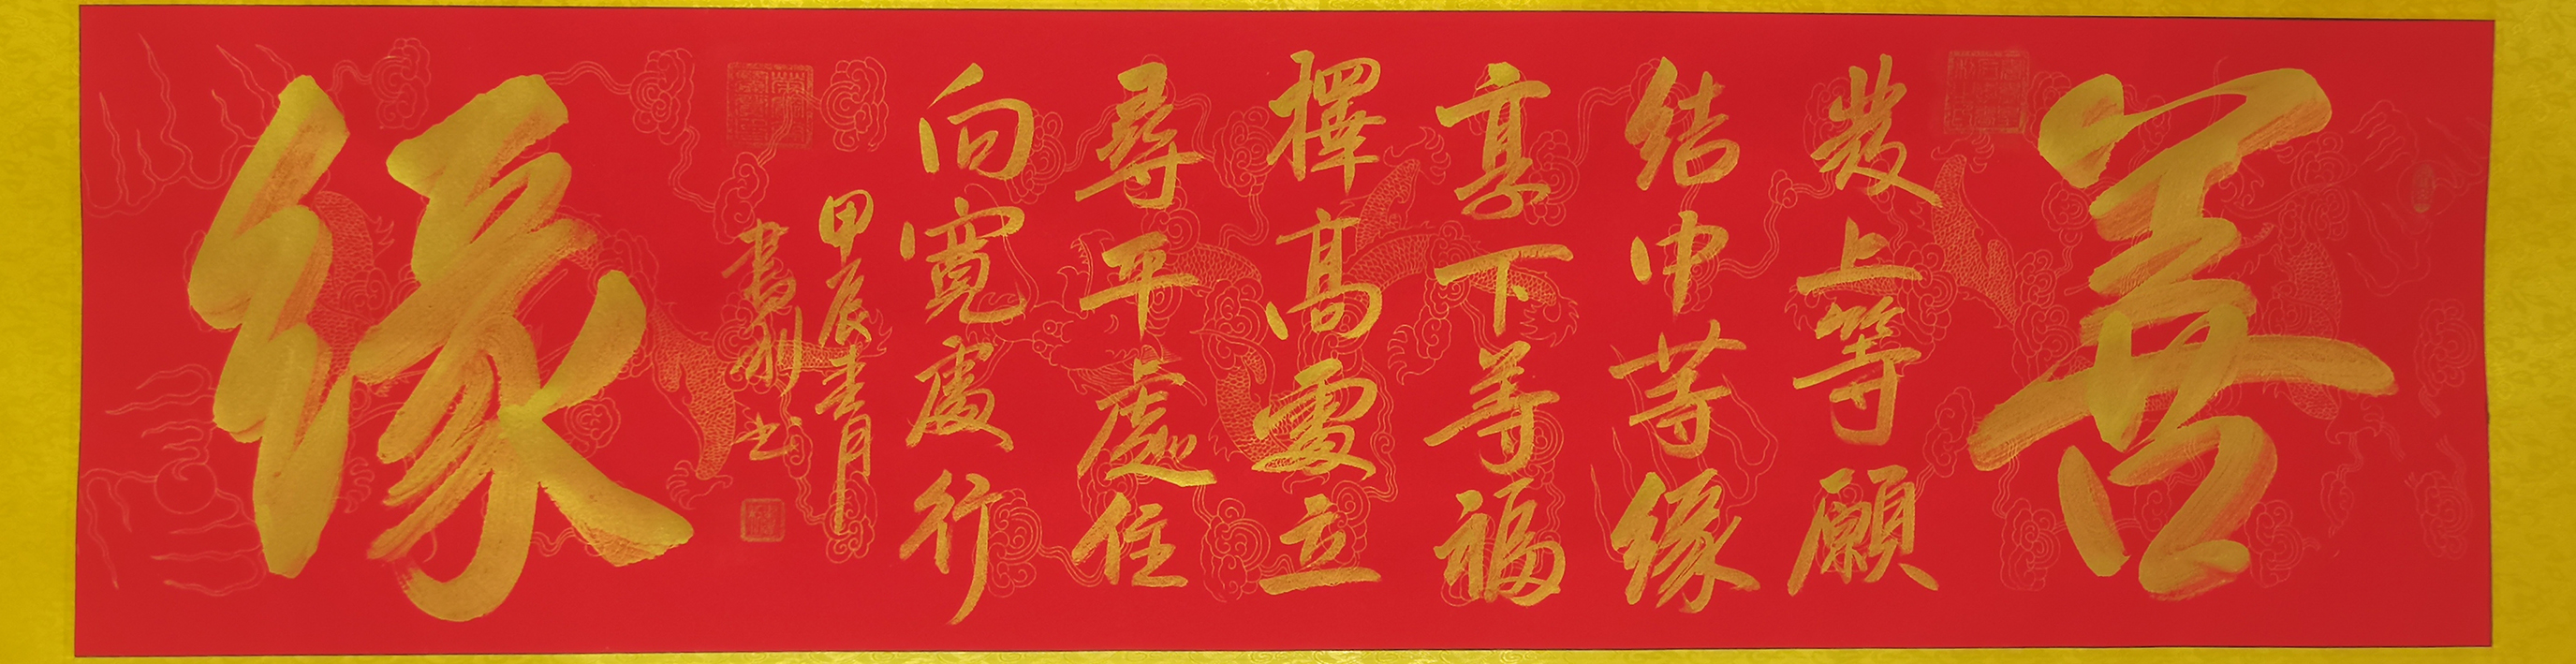 善
發上等願
結中等緣
享下等福
擇高處立
尋平處住
向寬處行
甲辰春月
書利书
緣